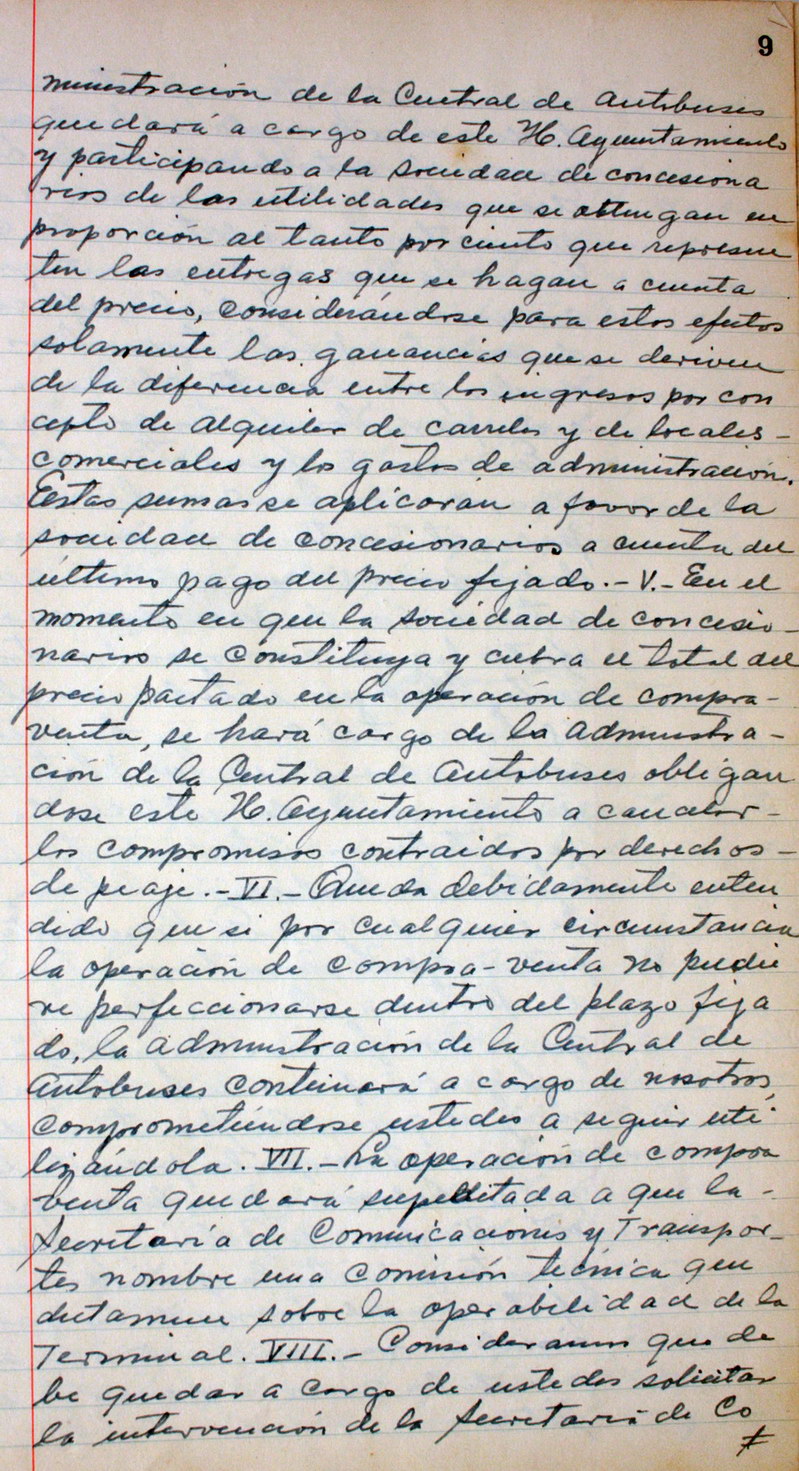 9
ministración de la Central de Autobuses
quedará a cargo de este H. Ayuntamiento
y participando a la sociedad de concesiona
rios de las utilidades que se obtengan en
proporción al tanto por ciento que represen
ten las entregas que se hagan a cuenta
del precio, considerándose para estos efectos
solamente las ganancias que se deriven
de la diferencia entre los ingresos por con
cepto de alquiler de carriles y de locales-
comerciales y los gastos de administración.
Estas sumas se aplicarán a favor de la
sociedad de concesionarios a cuenta del
último pago del precio fijado.- V.- En el
momento en que la sociedad de concesio-
narios se constituya y cubra el total del
precio pactado en la operación de compra-
venta, se hará cargo de la administra-
ción de la Central de Autobuses obligan
dose este H. Ayuntamiento a cancelar-
los compromisos contraidos por derechos-
de peaje.- VI.- Queda debidamente enten
dido que si por cualquier circunstancia
la operación de compra-venta no pudie
re perfeccionarse dentro del plazo fija
do, la administración de la Central de
Autobuses continuará a cargo de nosotros,
comprometiéndose ustedes a seguir uti
lizándola. VII.- La operación de compra
venta quedará supeditada a que la-
Secretaría de Comunicaciones y Transpor-
tes nombre una comisión técnica que
dictamine sobre la operabilidad de la
Terminal. VIII.- Consideramos que de
be quedar a cargo de ustedes solicitar
la intervención de la Secretaría de Co